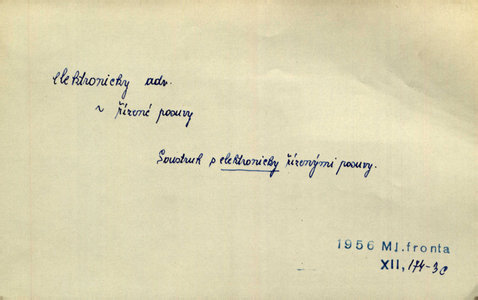 elektronicky adv.
~ řízené posuvy
Soustruh s elektronicky řízenými posuvy.
1956 Ml.fronta
XII, 174-3c